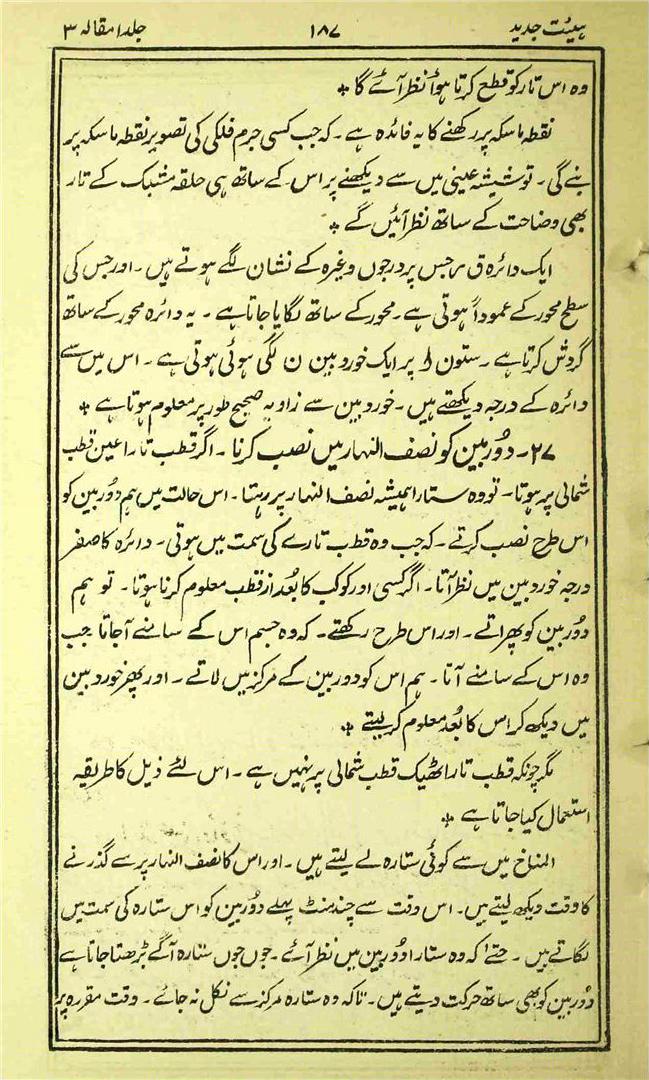 ہیئت جدید ۱۸۷ جلد ۱ مقالہ ۳
وہ اس تار کو قطع کرتا ہوا نظر آئے گا ٭
نقطہ ماسکہ پر رکھنے کا یہ فائدہ ہے۔ کہ جب کسی جرم فلکی کی تصویر نقطہ ماسکہ پر
بنے گی۔ تو شیشہ عینی میں سے دیکھنے پر اس کے ساتھ ہی حلقہ مشبک کے تار
بھی وضاحت کے ساتھ نظر آئیں گے ٭
ایک دائرہ ق ر جس پر درجوں وغیرہ کے نشان لگے ہوتے ہیں۔ اور جس کی
سطح محور کے عموداً ہوتی ہے۔ محور کے ساتھ لگایا جاتا ہے۔ یہ دائرہ محور کے ساتھ
گردش کرتا ہے۔ ستون ل پر ایک خوردبین ن لگی ہوئی ہوتی ہے۔ اس میں سے
دائرہ کے درجہ دیکھتے ہیں۔ خوردبین سے زاویہ صحیح طور پر معلوم ہوتا ہے ٭
۲۷۔ دُوربین کو نصف النہار میں نصب کرنا۔ اگر قطب تارا عین قطب
شمالی پر ہوتا۔ تو وہ ستارا ہمیشہ نصف النہار پر رہتا۔ اس حالت میں ہم دُوربین کو
اس طرح نصب کرتے۔ کہ جب وہ قطب تارے کی سمت میں ہوتی۔ دائرہ کا صفر
درجہ خوردبین میں نظر آتا۔ اگر کسی اور کوکب کا بُعد از قطب معلوم کرنا ہوتا۔ تو ہم
دُوربین کو پھراتے۔ اور اس طرح رکھتے۔ کہ وہ جسم اس کے سامنے آجاتا جب
وہ اس کے سامنے آتا۔ ہم اس کو دوربین کے مرکز میں لاتے۔ اور پھر خوردبین
میں دیکھ کر اس کا بُعد معلوم کر لیتے ٭
مگر چونکہ قطب تارا ٹھیک قطب شمالی پر نہیں ہے۔ اس لئے ذیل کا طریقہ
استعمال کیا جاتا ہے ٭
المناخ میں سے کوئی ستارہ لے لیتے ہیں۔ اور اس کا نصف النہار پر سے گذرنے
کا وقت دیکھ لیتے ہیں۔ اس وقت سے چند منٹ پہلے دُوربین کو اس ستارہ کی سمت میں
لگاتے ہیں۔ حتےٰ کہ وہ ستارا دُوربین میں نظر آئے۔ جوں جوں ستارہ آگے بڑھتا جاتا ہے
دُوربین کو بھی ساتھ حرکت دیتے ہیں۔ تاکہ وہ ستارہ مرکز سے نکل نہ جائے۔ وقت مقررہ پر